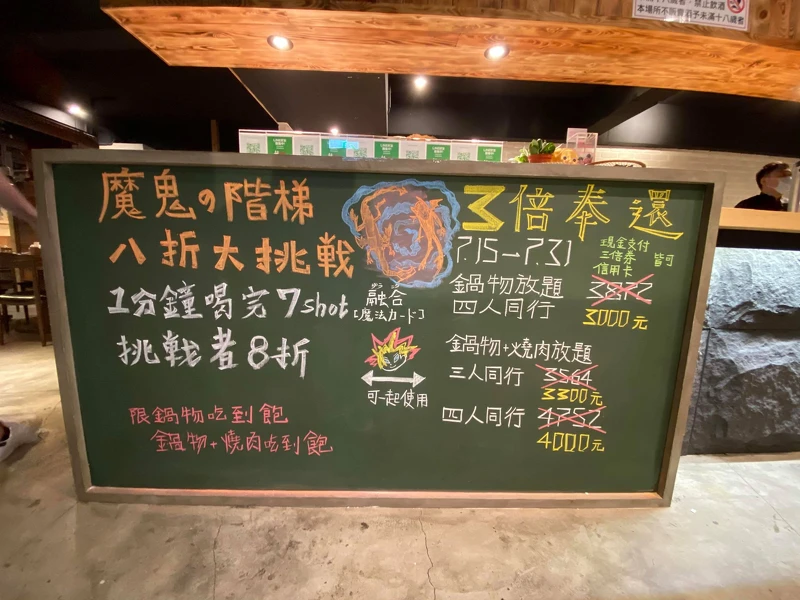 本場所不販賣酒予未滿十八歲者
魔鬼の階梯
八折大挑戰
1分鐘喝完7shot
挑戰者8折
限鍋物吃到飽
鍋物+燒肉吃到飽
融合
[魔法カード]
可一起使用
3倍奉還
7.15→7.31
現金支付
三倍券
信用卡
皆可
鍋物放題
四人同行
3872
3000元
鍋物+燒肉放題
三人同行
3564
3300元
四人同行
4752
4000元